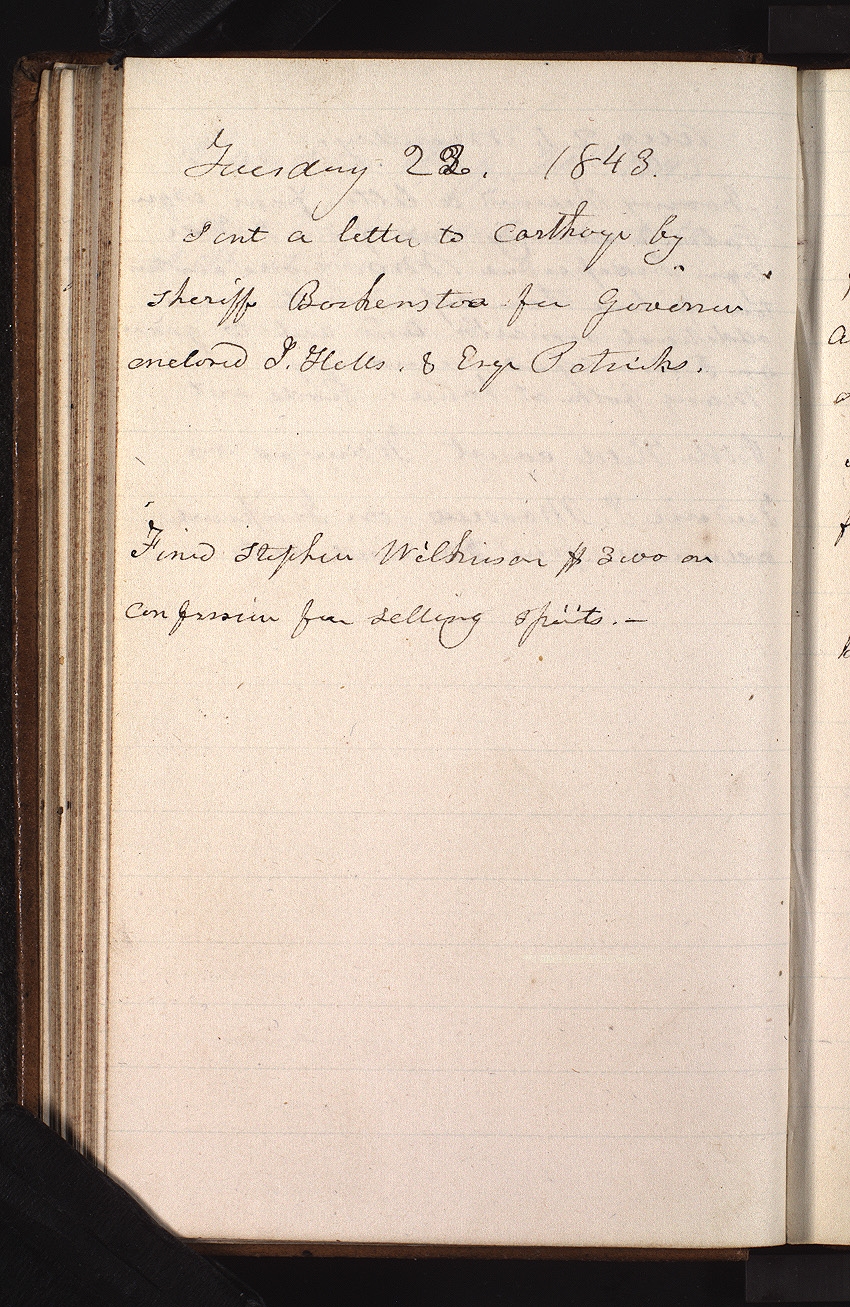 Tuesday 23. 1843.
Sent a letter to Carthage by
Sheriff Backenstos for Governor
enclosed I. Hills. & Esqr Patricks.
Fined Stephen Wilkinson $3.00 on
confession for selling spirits.—